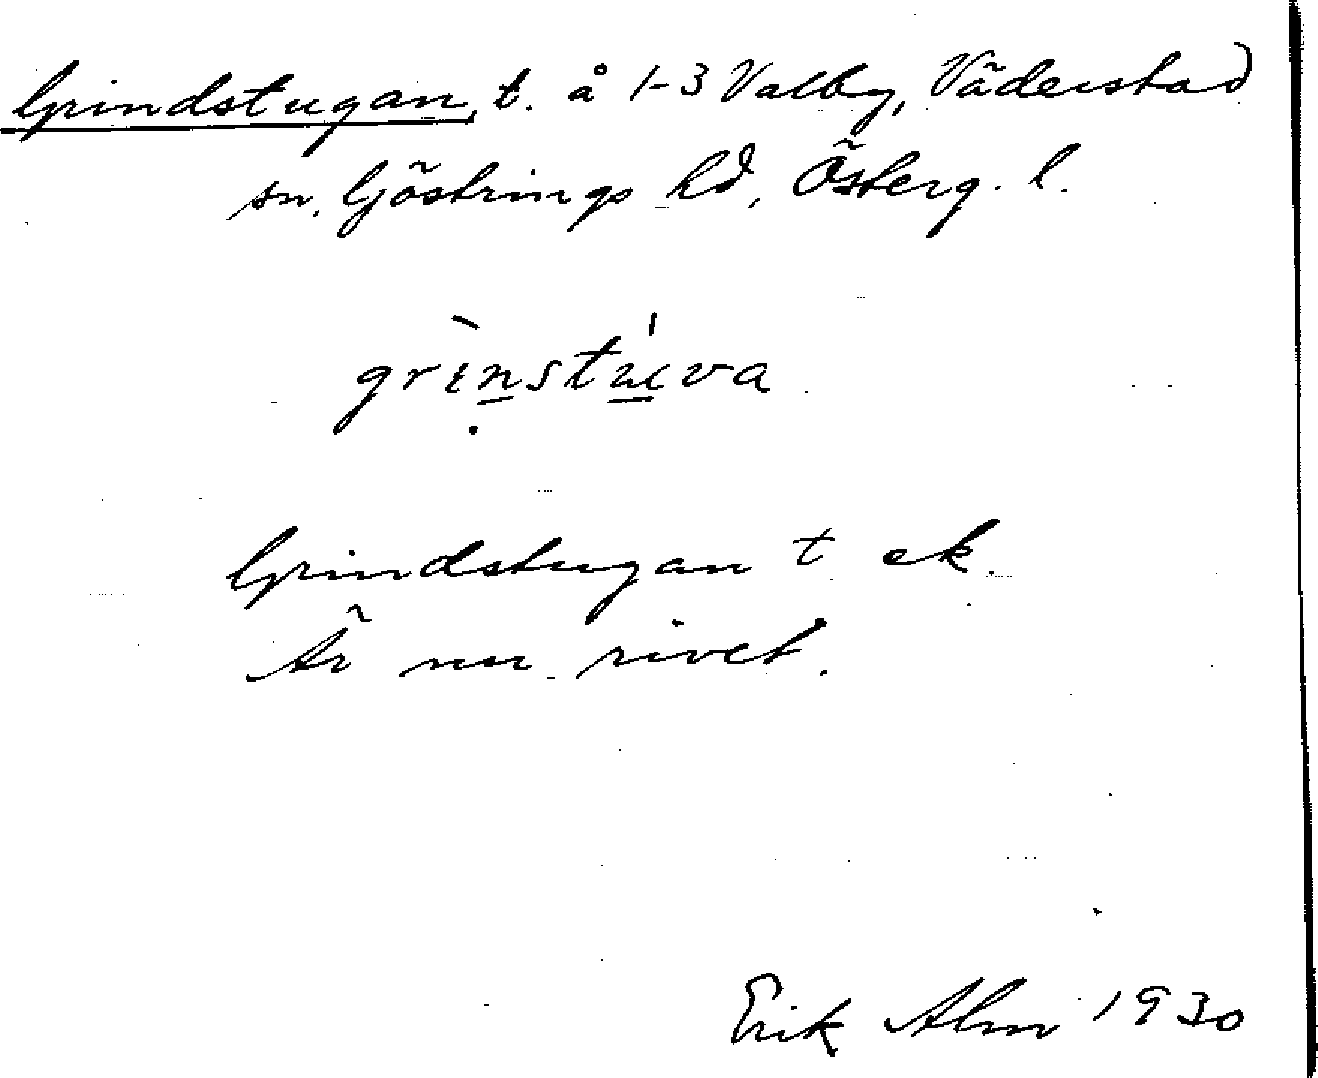 Grindstugan, t. å 1-3 Valby, Väderstad
sn. Göstrings hd, Österg. l.
grinstuva
Grindstugan t ek.
Är nu rivet.
Erik Alm 1930